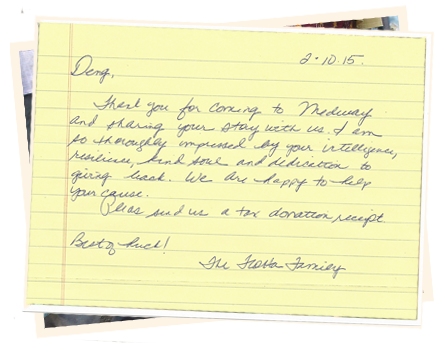 2·10·15.
Deng,
Thank you for coming to Medway
and sharing your stay with us. I am
so thoroughly impressed by your intelligence,
resilience, kind soul and dedication to
giving back. We are happy to help
your cause.
Pleas send us a tax donation receipt.
Best of Luck!
The Family